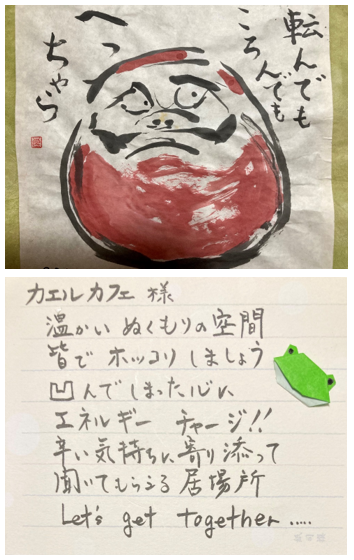 転んでも
ころんでも
へっ
ちゃら
カエルカフェ 様
温かい ぬくもりの空間
皆で ホッコリしましょう
凹んでしまった心に
エネルギー チャージ!!
辛い気持ちに寄り添って
聞いてもらえる居場所
Let's get together.....